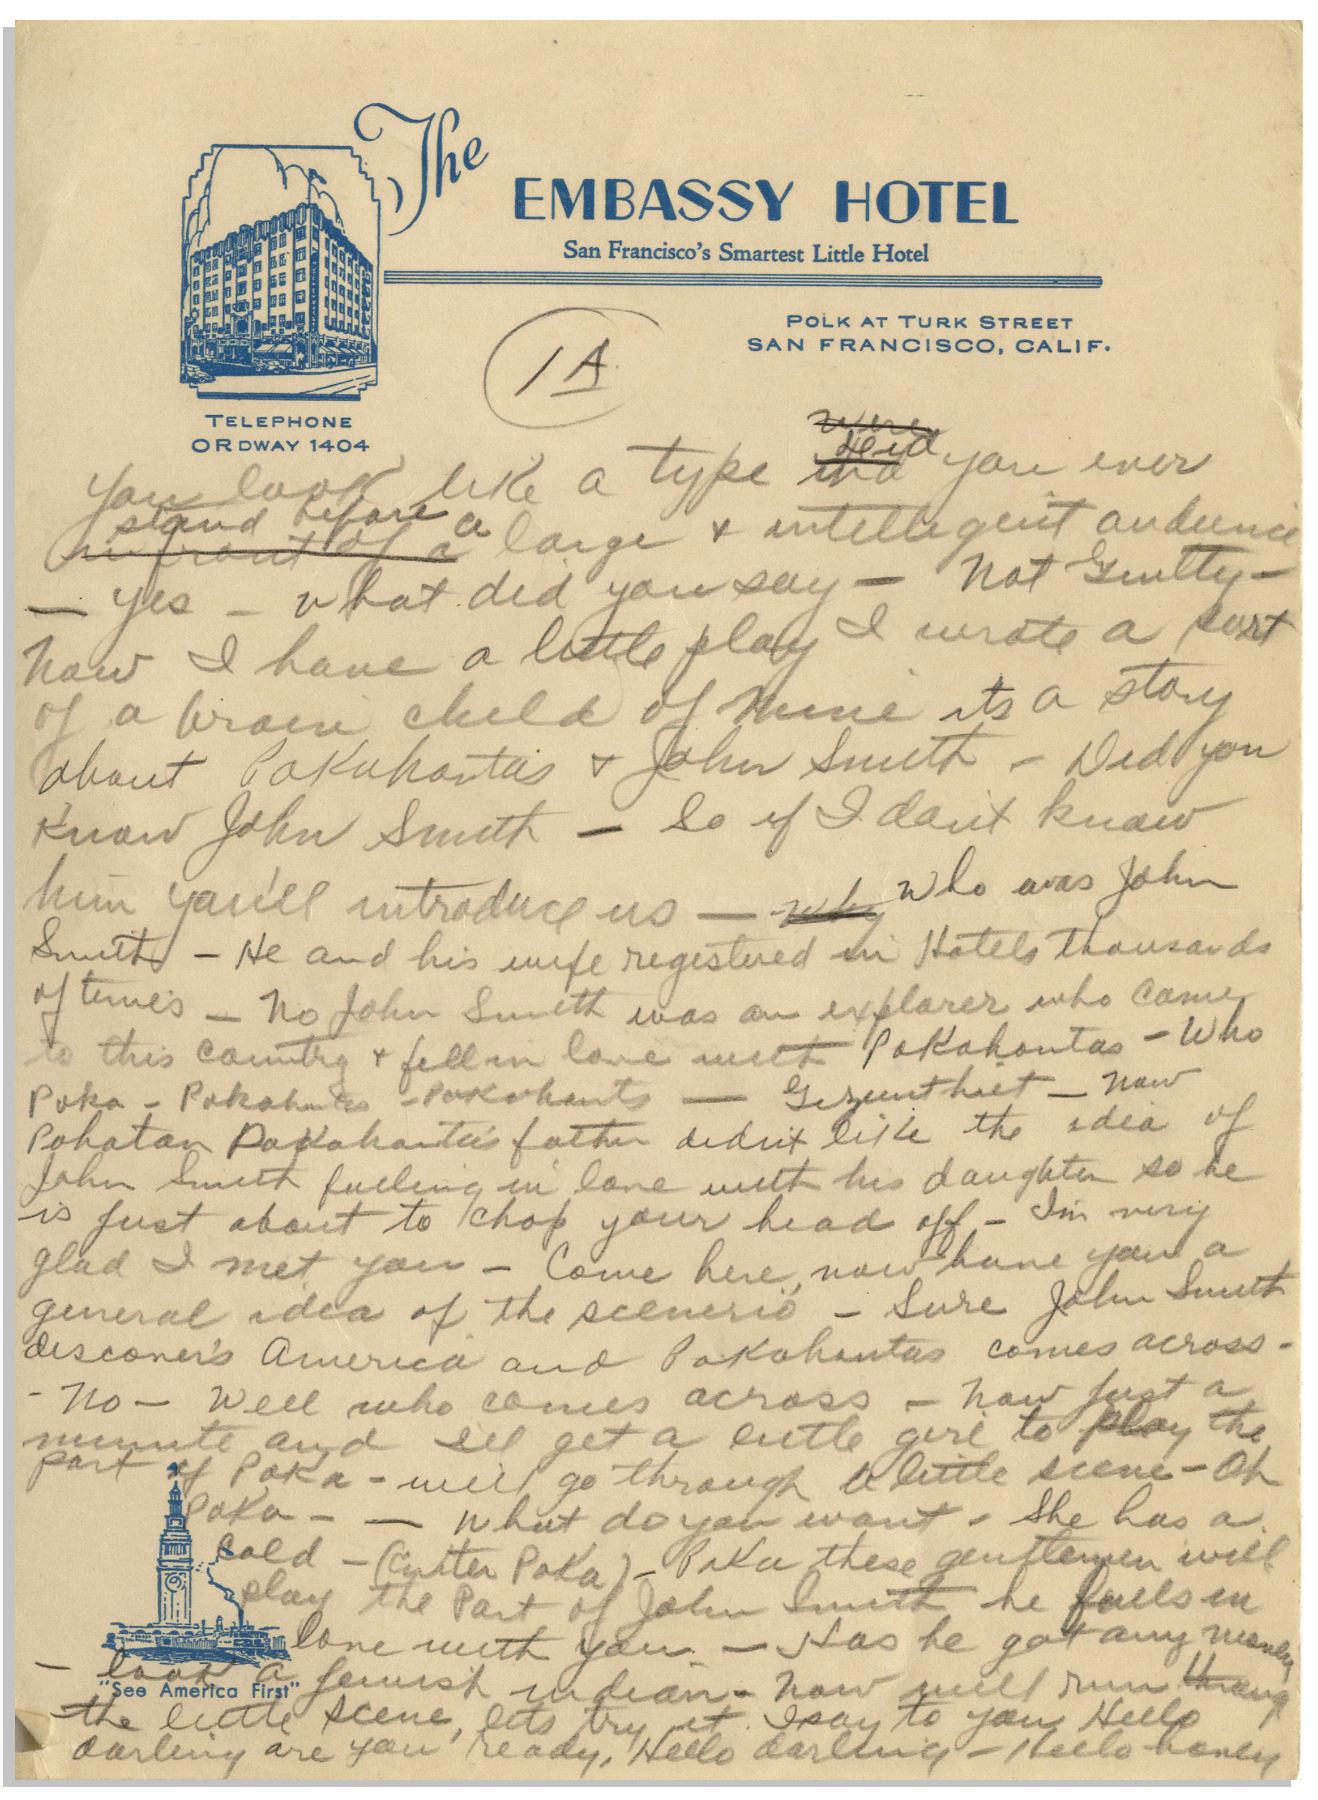 The
EMBASSY HOTEL
San Francisco's Smartest Little Hotel
POLK AT TURK STREET
SAN FRANCISCO, CALIF.
1A
TELEPHONE
ORDWAY 1404
were
Did
you look like a type and you ever
stand before a
in front of a large & intelligent audience
— yes — what did you say — Not Guilty —
Now I have a little play I wrote a sort
of a brain child of mine its a story
about Pokahontas & John Smith – Did you
know John Smith — So if I don't know
him you'll introduce us — why who was John
Smith – He and his wife registered in Hotels thousands
of times — No John Smith was an explorer who came
to this country & fell in love with Pokahontas – Who
Poka – Pokahontas – Pokohants — Gezunthiet – Now
Pohatan Pokahantas father didn't like the idea of
John Smith falling in love with his daughter so he
is just about to chop your head off – I'm very
glad I met you – Come here, now have you a
general idea of the scenerio – Sure John Smith
discover's America and Pokahontas comes across –
- No – Well who comes across – Now just a
minute and I'll get a little girl to play the
part of Poka – we'll go through a little scene – Oh
Poka – — What do you want – She has a
Cold – (Enter Poka) – Poka these gentlemen will
play the Part of John Smith he falls in
love with you. – Has he got any money
– look a Jewish indian – Now we'll run through
"See America First"
the little scene, lets try it. I say to you Hello
darling are you ready, Hello darling – Hello honey